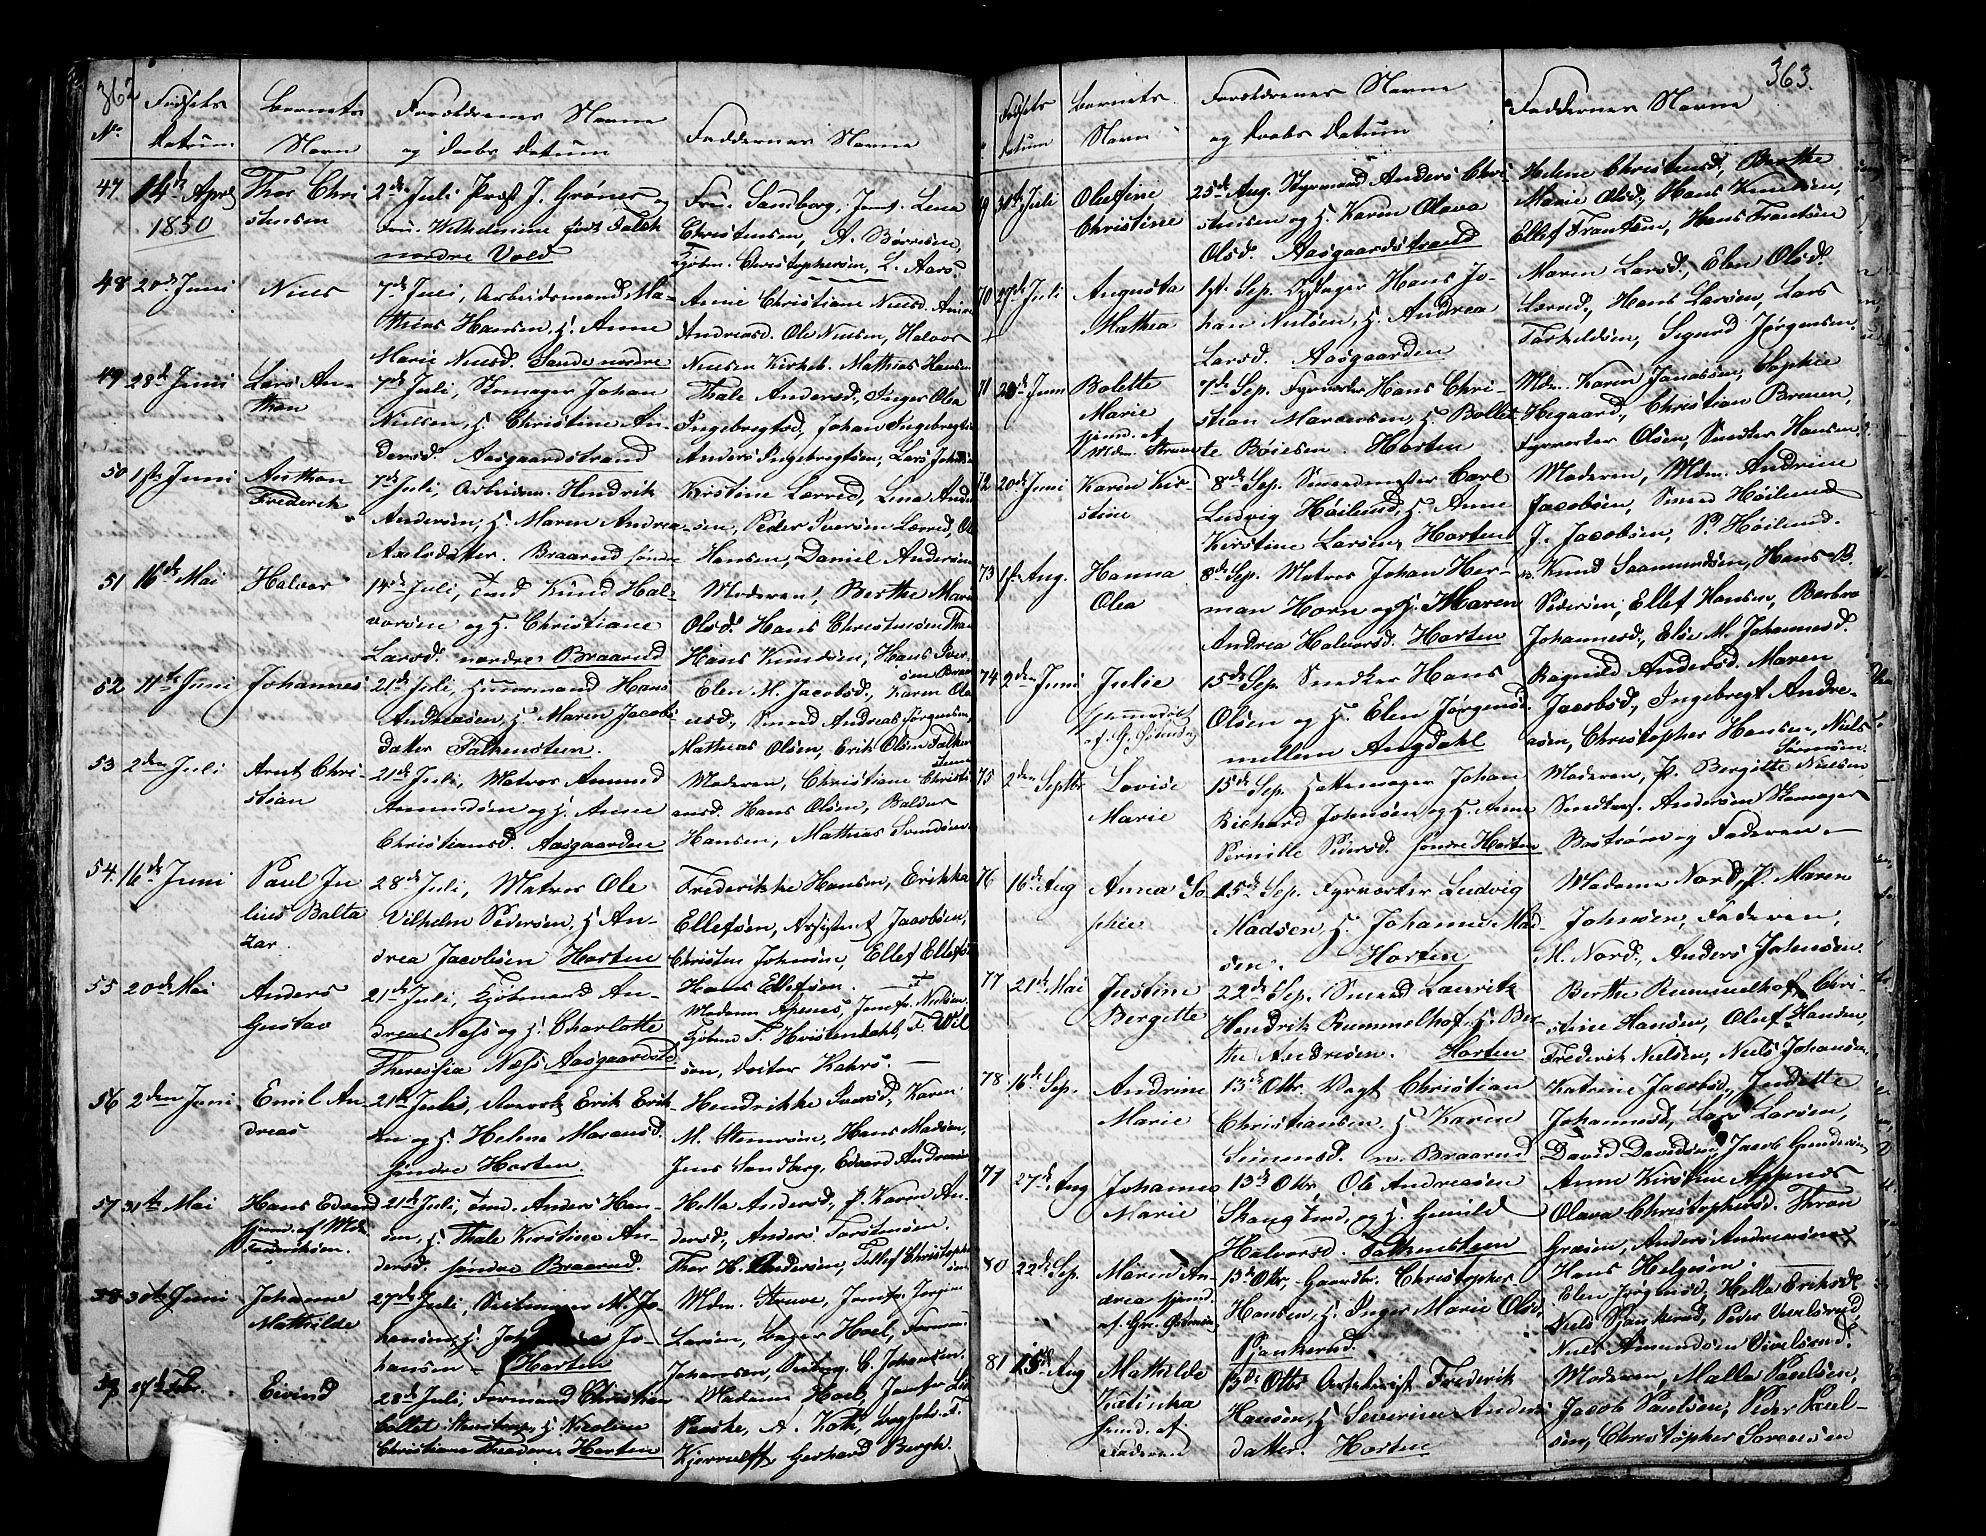 362
No.
Fødsels
datum
Barnets
Navn
Forældrenes Navne
og Daabs datum
Faddernes Navne
47
14de April
1850
Thor Chri
stensen
2den Juli Prof. J. Grøner og
Frue Wilhelmine født Falck
nordre Vold
Frue Sandborg, Jomf. Lena
Christensen, A. Børresen,
Kjøbm. Christophersen, L. Aars
48
20de Juni
Nils
7de Juli, Arbeidsmand Ma-
thias Hansen, H. Anne
Marie Nilsd. Sande nordre
Anne Christiane Nilsd. Anne
Andreasd. Ole Nilsen, Halvor
Nilsen Kirkeb. Mathias Hansen
49
28de Juni
Lars An-
thon
7de Juli, Skomager Johan
Nielsen, H. Christine An-
dersd. Aasgaardstrand
Thale Andersd., Inger Olea
Ingebregtsd, Johan Ingebregtsen
Anders Ingebregtsen, Lars Johnsen
50
1ste Juni
Anthon
Frederik
7de Juli, Arbeidsm. Hendrik
Andersen, H. Maren Andrea
Axelsdatter. Braarud søndre
Kirstine Lærred, Lena Ander
sen, Peder Iversen Lærred, Ole
Hansen, Daniel Andersen
51
16de Mai
Halvor
14de Juli, Tmd Knud Hal-
vorsen og H. Christiane
Larsd. nordre Braarud
Moderen, Berthe Marie
Olsd. Hans Christensen
Hans Knudsen, Hans Iver-
sen Braar
52
11te Juni
Johannes
21de Juli, Huusmand Hans
Andreasen, H. Maren Jacobs-
datter Falkensteen.
Elen M. Jacobsd., Karen Ola
usd., Smed Andreas Jørgensen,
Mathias Olsen, Erik Olsen Falken
steen
53
2den Juli
Arnt Chri-
stian
21de Juli, Matros Amund
Amundsen og H. Anne
Christiansd. Aasgaarden
Moderen, Christiane Christi
ansd. Hans Olsen, Baldus
Hansen, Mathias Svendsen
54.
16de Juni
Paul Ju
lius Balta
zar.
28de Juli, Matros Ole
Vilhelm Pedersen, H An-
drea Jacobsen Horten
Frederikke Hansen, Erikka
Ellefsen, Assistent Jacobsen,
Christen Johnsen, Ellef Ellefsen
55
20de Mai
Anders
Gustav
21de Juli, Kjøbmand An-
dreas Næss og H. Charlotte
Theressia Næss Aasgaardstr
Hans Ellefsen.
Madame Apenes, Jomfr. Nielsen
Kjøbm T. Hvistendahl, T. Wil
sen, Doctor Kahrs.
56
2den Juni
Emil An
dreas
21de Juli, Erik Erik-
sen og H. Helene Marensd.
Søndre Horten.
Hendrikke Iversd, Karen
M. Stenersen, Hans Madsen,
Jens Sandberg, Edvard Andreasen
57
31te Mai
Hans Edvard
hjemd. af Mdm
Frederiksen.
21de Juli, Tmd. Anders Han-
sen, H. Thale Kirstine An-
dersd. søndre Braarud.
Hella Andersd, P. Karen An-
dersd, Anders Torstensen.
Thor H. Andersen, Tellef Christopher
sen
58
30te Juni
Johanne
Mathilde
27de Juli, M. Jo-
hansen, H. Jo-
hansen Horten
Mdm. Struve, Jomfr.
Larsen, Lager Hoel,
Johannsen, C. Johansen.
59
27de Febr.
Eivind
28de Juli, Formand Christian
Collet H Nicoline
Christiane Horten
Madame Hoel, Jomfr
Paaske, A. Koth,
Kjerrulff Gerhard Bergh.
363.
Fødsels
datum
Barnets
Navn
Forældrenes Navne
og Daabs datum
Faddernes Navne
31te Juli
Oleftine
Christine
25de Aug. Styrmand Anders Chri-
stensen og H. Karen Olava
Olsd. Aasgaardstrand
Helene Christensd, Berthe
Marie Olsd., Hans Knudsen,
Ellef Frantsen, Hans Frantsen
70
29de Juli
Augusta
Mathea
1ste Sep. Hans Jo-
han Nielsen, H. Andrea
Larsd. Aasgaarden
Maren Larsd., Elen Olsd.
Lærred, Hans Larsen, Lars
Torkeldsen, Sigurd Jørgensen.
71
20de Juni
Bolette
Marie
hjemd. af
Mdm. Struve
7de Sep. Fyrverker Hans Chri-
stian Marcussen, H. Bollet
te Boiesen. Horten
Mdm. Karen Jonassen, Sophie
Hegaard, Christian Breuen,
Fyrverker Olsen, Snedker Hansen.
72
20de Juni
Karen Kir-
stine
8de Sep. Smedmester Carl
Ludvig Høilund, H. Anne
Kirstine Larsen, Horten
Moderen, Mdm. Andrine
Jacobsen, Smed Høilund
J. Jacobsen, P. Høilund.
73
1ste Aug.
Hanna
Olea
8de Sep. Matros Johan Her-
man Horn og H. Maren
Andrea Halvorsd. Horten
Knud Saamundsen, Hans B.
Pedersen, Ellef Hansen, Barbro
Johannesd., Elise M. Johannesd.
74
2den Juni
Julie
hjemdøbt
af G.
15de Sep. Snedker Hans
Olsen og H. Elen Jørgensd.
mellem Augdahl
Ragnild Andersd. Maren
Jacobsd, Ingebregt Andre-
asen, Christopher Hansen, Niels
Simonsen.
75
2den Septbr
Lovise
Marie
15de Sep. Hattemager Johan
Richard Johnsen og H. Anne
Pernille Pedersd. søndre Horten
Moderen, P. Bergitte Nielsen
Andersen
Bostrøm og Faderen.
76
16de Aug
Anna So
phie
15de Sep. Fyrverker Ludvig
Madsen, H. Johanne Mad-
sen. Horten
Madame Nord, P. Maren
Johnsen, Faderen,
M. Nord, Anders Johnsen.
77
21de Mai
Justine
Bergitte
22de Sep. Smed Lauritz
Hendrik Rummelhof, H. Ber-
the Andresen. Horten
Berthe Rummelhof, Chri-
stine Hansen, Oluf Hansen,
Frederik Nielsen, Niels Johansen.
78
16de Sep.
Andrine
Marie
13de Otbr. Vagt Christian
Christiansen, H Karen
Simensd. n. Braarud
Katrine Jacobsd, Inditte
Johannesd, Lars Larsen,
David Davidsen, Jacob Gundersen,
27de Aug
Johanne
Marie
13de Otbr Ole Andreasen
Skaug tmd. og H. Gunild
Halvorsd. Falkensteen
Anne Kirstine Appenes
Olava Christophersd. Thron
Græsen, Anders Andreasen
Hans Helgesen.
80
22de Sep.
Maren An-
drea hjemd.
13de Otbr. Gaardbr. Christopher
Hansen, H. Inger Marie Olsd,
Pjonkerud.
Elen Jørgensd, Hella Eriksd
Niels Pjonkerud, Peder Vivelsrud
Niels Amundsen Vivelsrud.
81
15de Aug
Mathilde
Katinka
hjemd. af
Faderen
13de Otbr Frederik
Hansen, H Severine Anders
datter. Horten
Moderen, Malla Paulsen,
Jacob Paulsen, Peder Poul-
sen, Christopher Sørensen